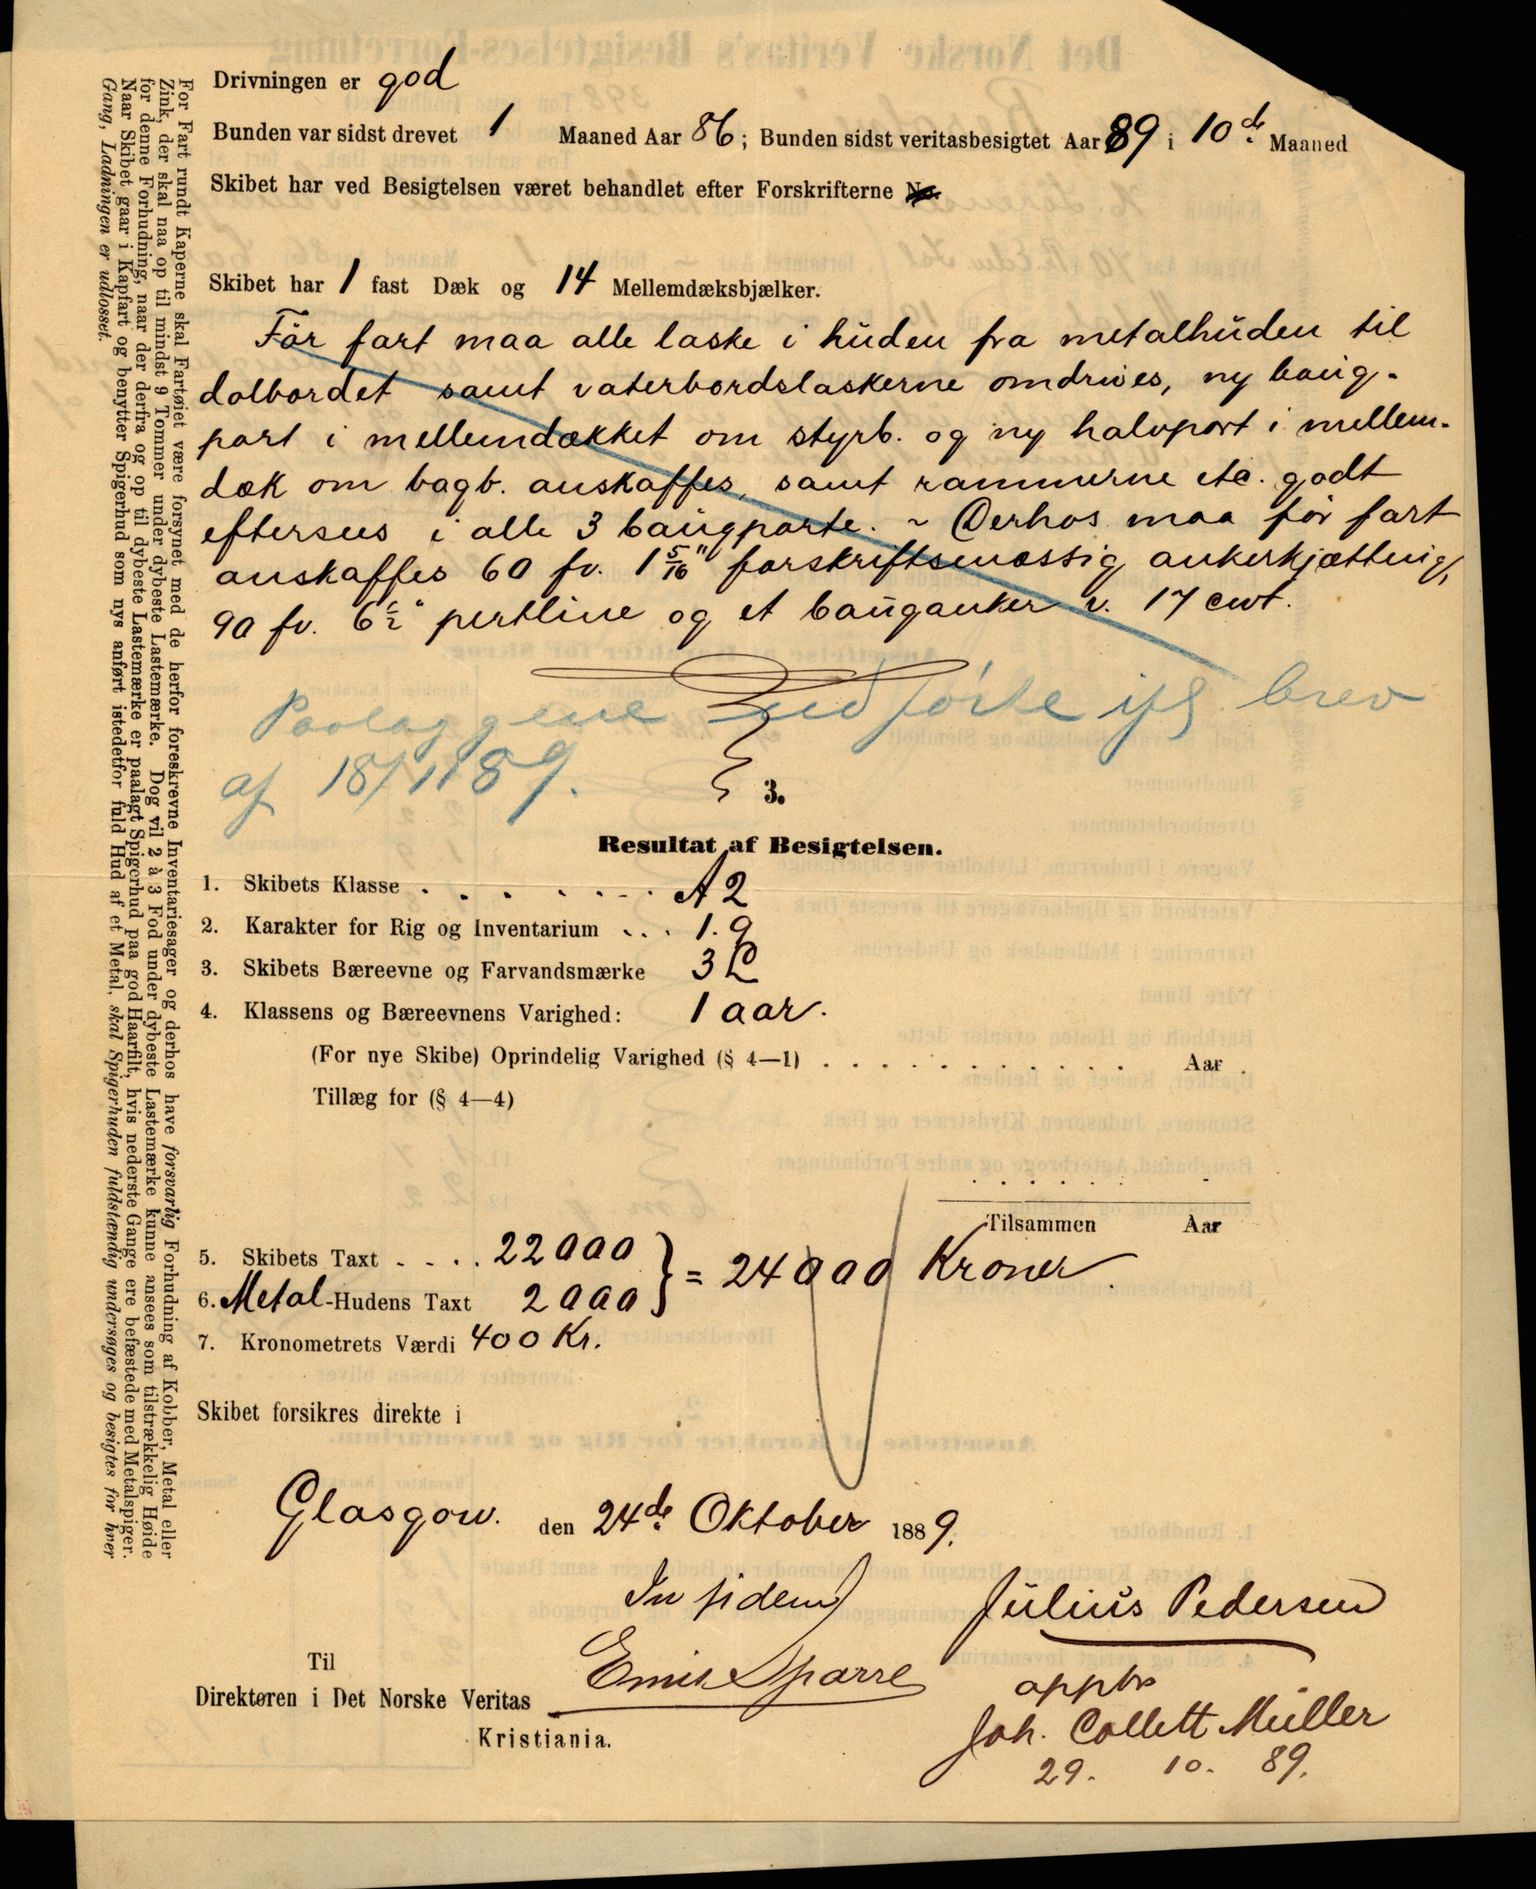 Drivningen er god
Bunden var sidst drevet 1 Maaned Aar 86; Bunden sidst veritasbesigtet Aar 89 i 10de Maaned
Skibet har ved Besigtelsen været behandlet efter Forskrifterne No.
Skibet har 1 fast Dæk og 14 Mellemdæksbjælker.
Før fart maa alle laske i huden fra metalhuden til
dolbordet samt vaterbordslaskerne omdrives, ny baug-
port i mellemdækket om styrb. og ny halvport i mellem-
dæk om bagb. anskaffes, samt rammerne etc. godt
eftersees i alle 3 baugporte. ~ Derhos maa før fart
anskaffes 60 fv. 1 5/16" forskriftsmæssig ankerkjætting,
90 fv. 6½" pertline og et bauganker v. 17 cwt.
Paalæggene udførte ifl. brev
af 18/11 89.
3.
Resultat af Besigtelsen.
1. Skibets Klasse . . . . . . . A 2
2. Karakter for Rig og Inventarium . . . 1.9
3. Skibets Bæreevne og Farvandsmærke 3 L
4. Klassens og Bæreevnens Varighed: 1 aar.
(For nye Skibe) Oprindelig Varighed (§ 4—1) . . . . . . . . . . . Aar .
Tillæg for (§ 4—4)
Tilsammen Aar
5. Skibets Taxt . . . . 22000 } = 24000 Kroner.
6. Metal-Hudens Taxt 2000
7. Kronometrets Værdi 400 Kr.
Skibet forsikres direkte i
Glasgow. den 24de Oktober 1889.
In fidem Julius Pedersen
Emil Sparre
Til
Direktøren i Det Norske Veritas
Kristiania.
appbr
Joh. Collett Müller
29. 10. 89.
For Fart rundt Kaperne skal Fartøiet være forsynet med de herfor foreskrevne Inventariesager og derhos have forsvarlig Forhudning af Kobber, Metal eller
Zink, der skal naa op til mindst 9 Tommer under dybeste Lastemærke. Dog vil 2 à 3 Fod under dybeste Lastemærke kunne ansees som tilstrækkelig Høide
for denne Forhudning, naar der derfra og op til dybeste Lastemærke er paalagt Spigerhud paa god Haarfilt, hvis nederste Gange ere befæstede med Metalspiger.
Naar Skibet gaar i Kapfart og benytter Spigerhud som nys anført istedetfor fuld Hud af et Metal, skal Spigerhuden fuldstændig undersøges og besigtes for hver
Gang, Ladningen er udlosset.